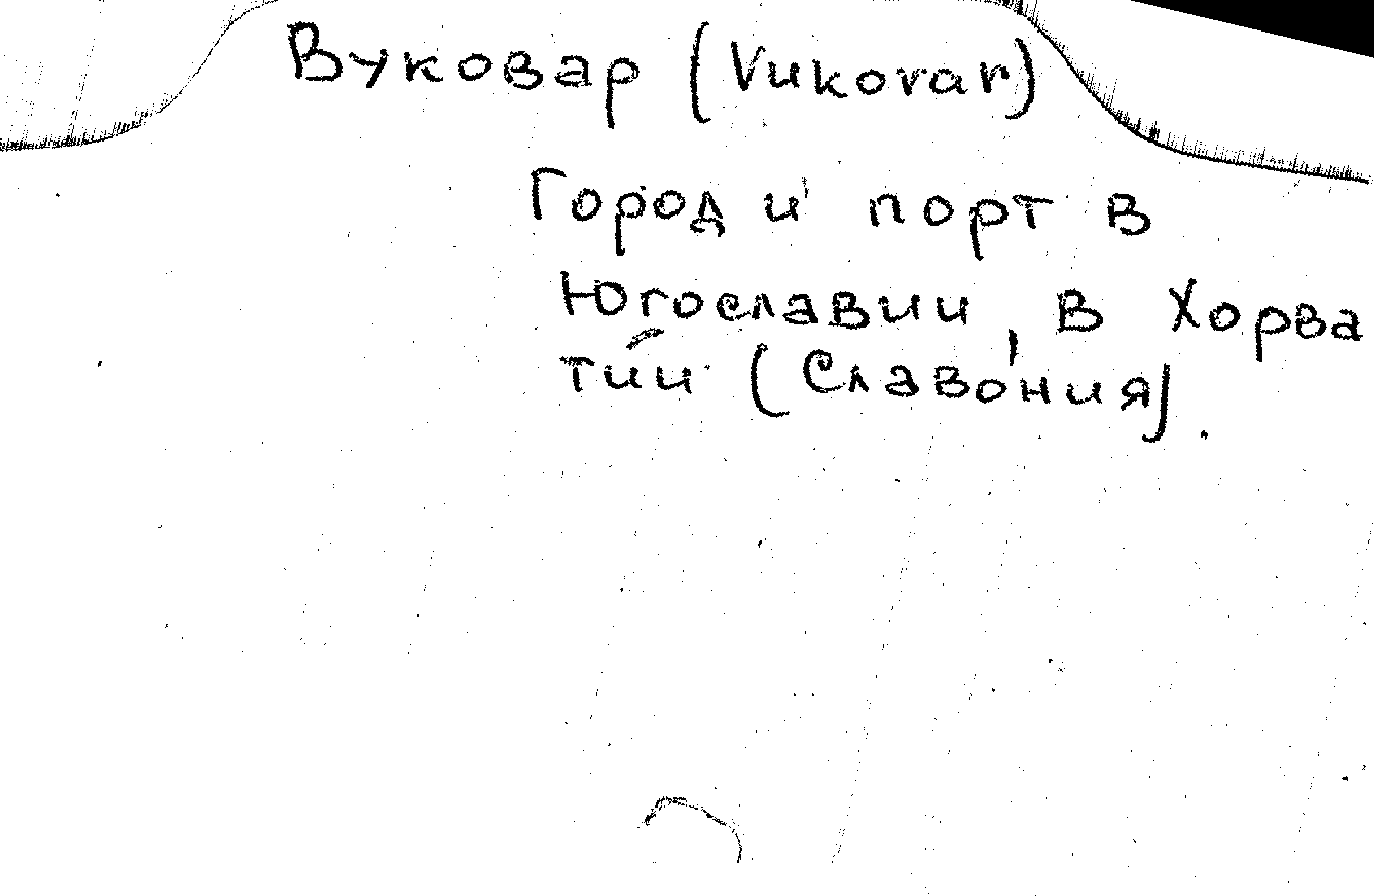 Вуковар (Vukovar)
Город и порт в
Югославии, в Хорва
тии (Славония).